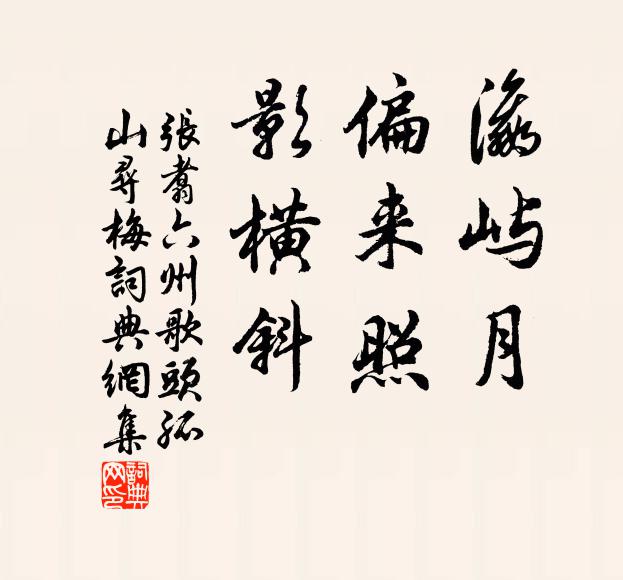 瀛屿月
偏来照
影横斜
張翥六州歌頭孤
山尋梅詞典網集
詞典网印